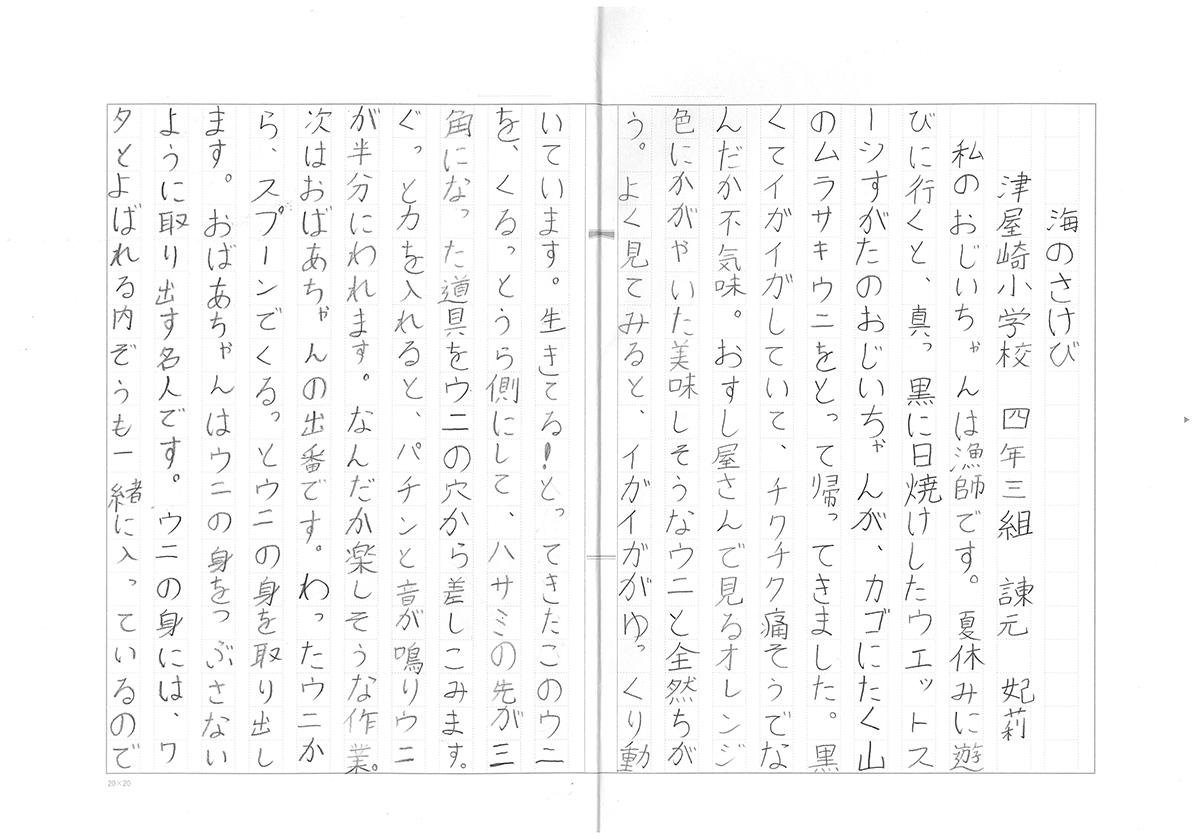 海のさけび
津屋崎小学校　四年三組　諌元　妃莉
私のおじいちゃんは漁師です。夏休みに遊
びに行くと、真っ黒に日焼けしたウエットス
ーツすがたのおじいちゃんが、カゴにたく山
のムラサキウニをとって帰ってきました。黒
くてイガイガしていて、チクチク痛そうでな
んだか不気味。おすし屋さんで見るオレンジ
色にかがやいた美味しそうなウニと全然ちが
う。よく見てみると、イガイガがゆっくり動
いています。生きてる!とってきたこのウニ
を、くるっとうら側にして、ハサミの先が三
角になった道具をウニの穴から差しこみます。
ぐっと力を入れると、パチンと音が鳴りウニ
が半分にわれます。なんだか楽しそうな作業。
次はおばあちゃんの出番です。わったウニか
ら、スプーンでくるっとウニの身を取り出し
ます。おばあちゃんはウニの身をつぶさない
ように取り出す名人です。ウニの身には、ワ
タとよばれる内ぞうも一緒に入っているので
20×20